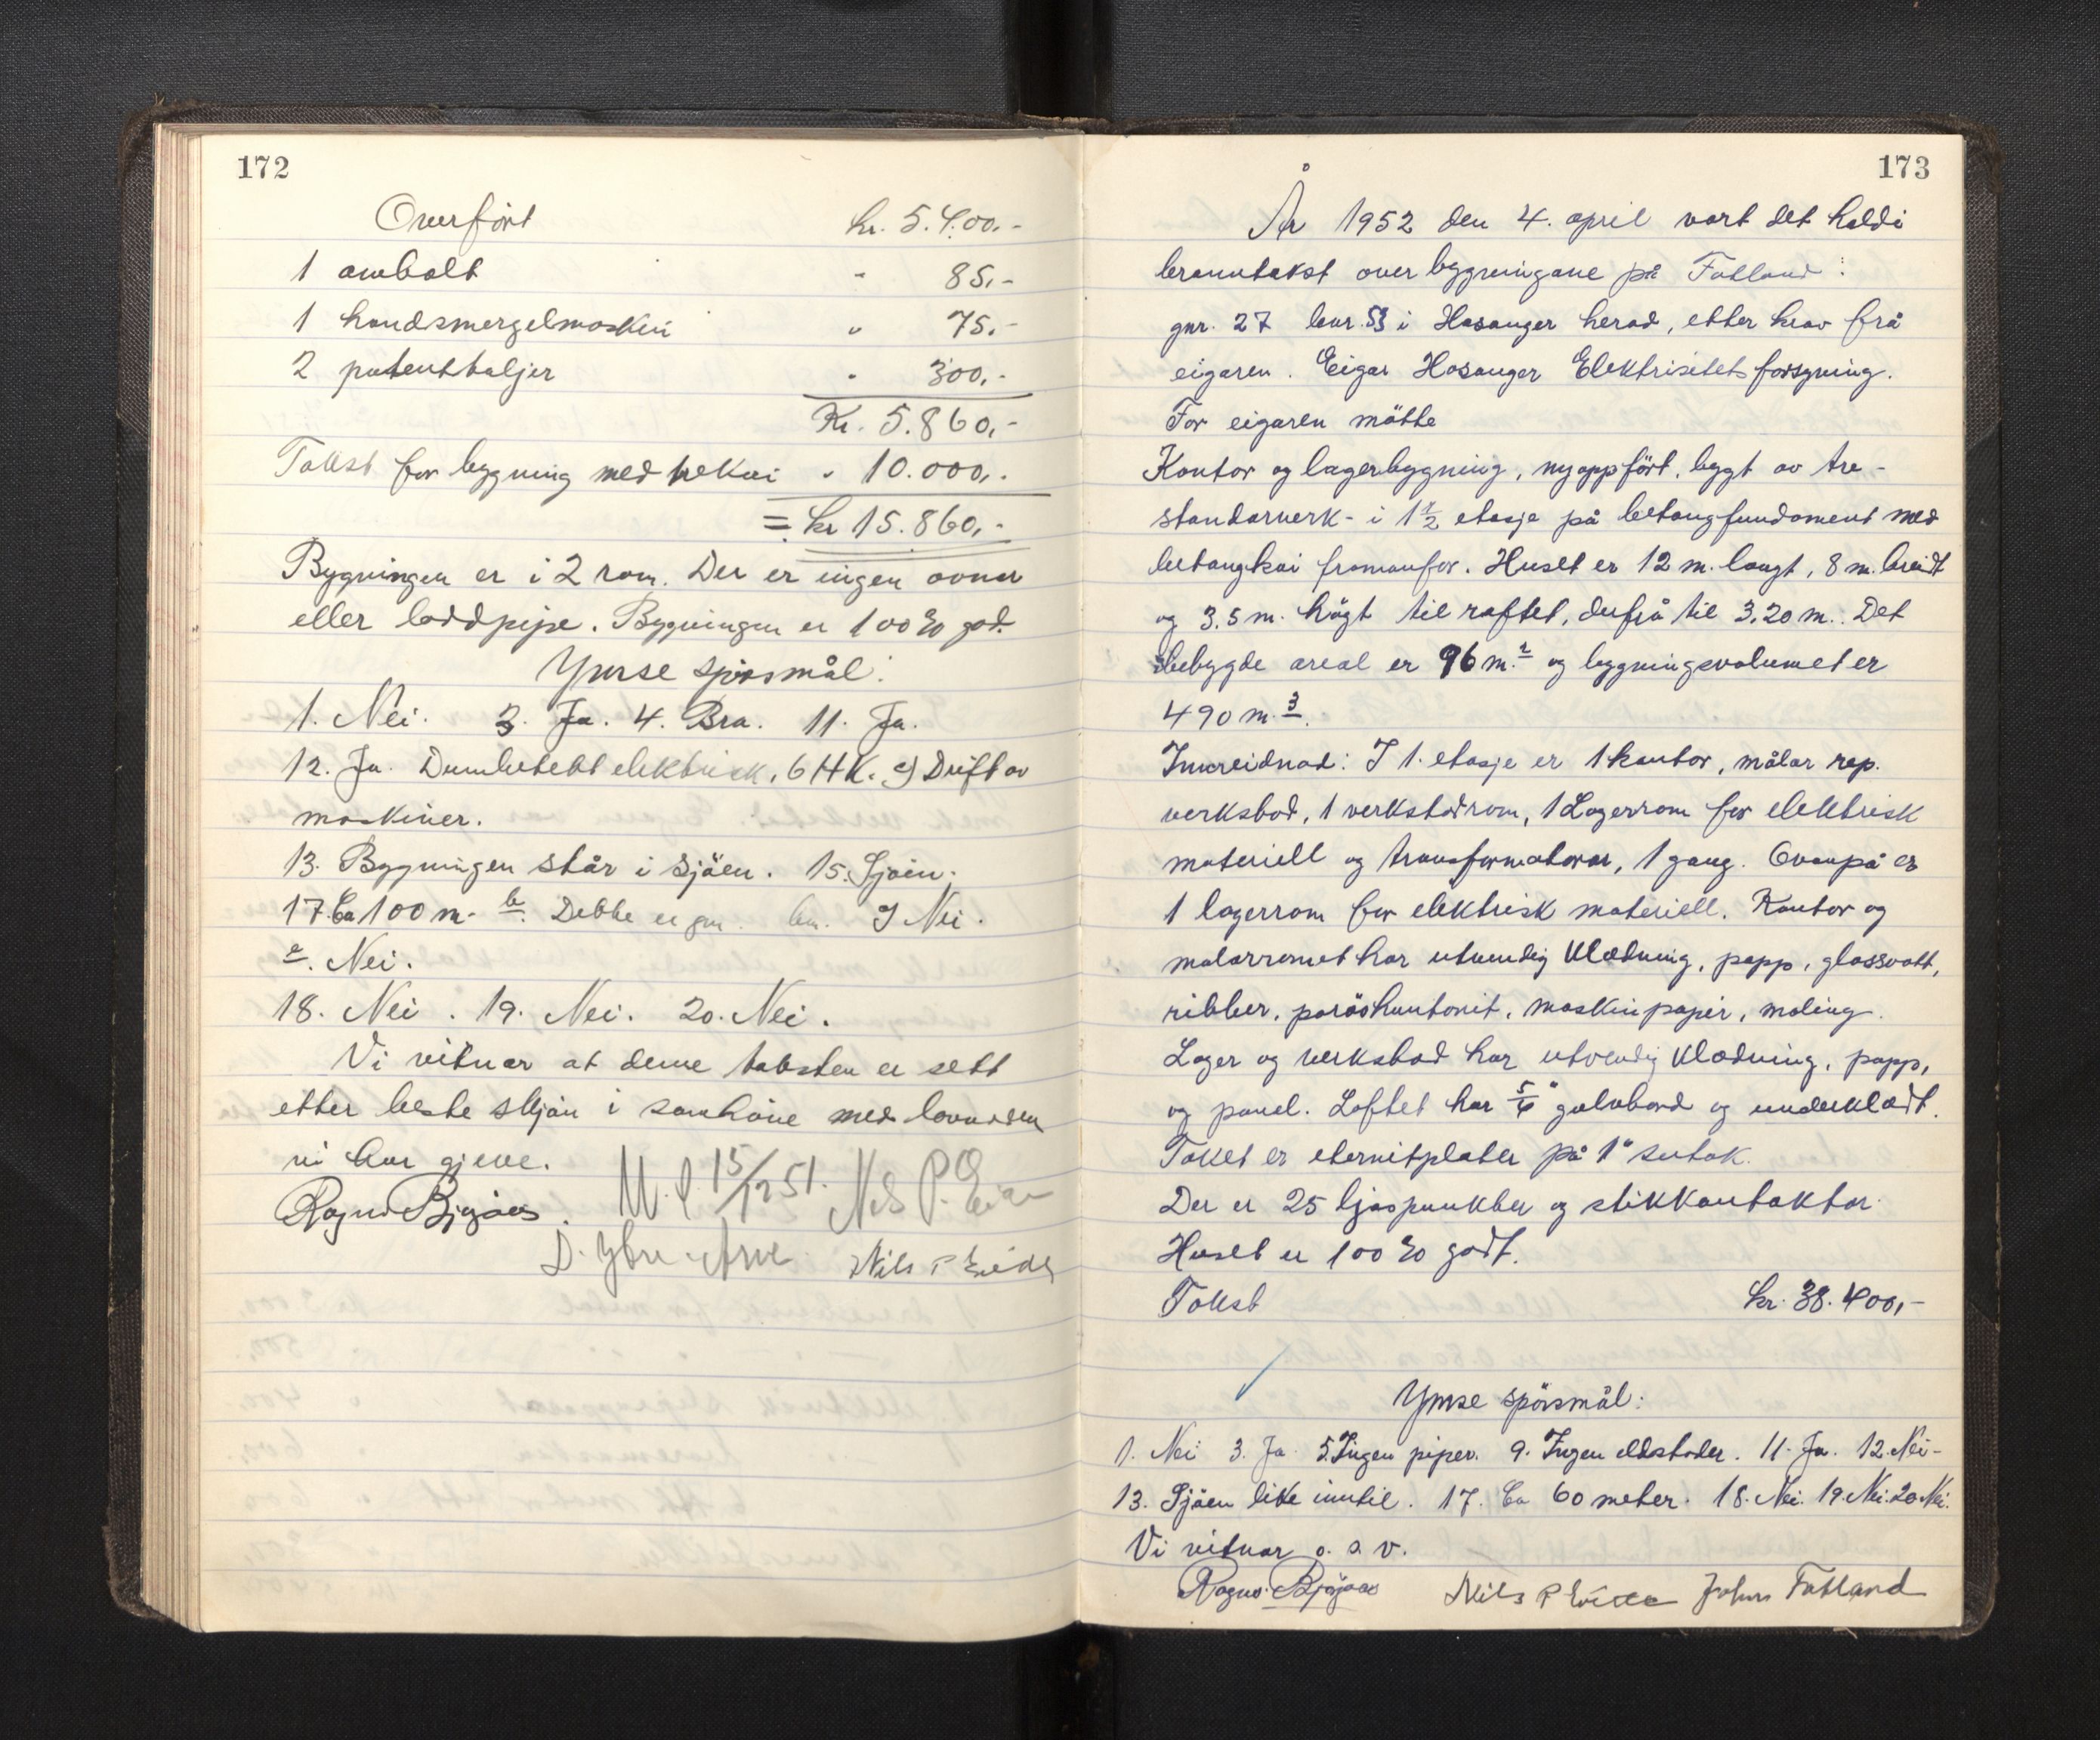 172
Overfört kr. 5.400.-
1 ambolt " 85.-
1 handsmergelmaskin " 75.-
2 patenttaljer " 300.-
Kr. 5.860.-
Takst for bygning med trekai " 10.000.-
= kr 15.860.-
Bygningen er i 2 rom. Der er ingen ovner
eller loddpipe. Bygningen er 100% god.
Ymse spörsmål:
1. Nei. 3. Ja. 4. Bra. 11. Ja.
12. Ja. elektrisk, 6 HK. Drift av
maskiner.
13. Bygningen står i sjöen. 15. Sjöen.
17. Ca 100 m. b. Dette er gnr. bnr. Nei.
e. Nei.
18. Nei. 19. Nei. 20. Nei.
Vi vitnar at denne taksten er sett
etter beste skjön i samhöve med lovnaden
vi har gjeve.
M. l. 15/12 51.
Nils P Eide
173
År 1952 den 4. april vart det haldi
branntakst over bygningane på Fatland:
gnr. 27 bnr. 53 i Hosanger herad, etter krav frå
eigaren. Eigar Hosanger Elektrisitetsforsyning.
For eigaren mötte
Kontor og lagerbygning, nyoppfört, bygt av tre-
standarverk - i 1 1/2 etasje på betongfundament med
betongkai framanfor. Huset er 12 m. langt, 8 m. breidt
og 3,5 m. högt til raftet, derfrå til 3,20 m. Det
bebygde areal er 96 m.² og bygningsvolumet er
490 m.³.
Innreidnad: I 1. etasje er 1 kontor, målar rep.
verkstad, 1 verkstadrom, 1 Lagerrom for elektrisk
materiell og transformatorar, 1 gang. Ovanpå er
1 lagerrom for elektrisk materiell. Kontor og
målarromet har utvendig klædning, papp, glassvatt,
ribber, poröshuntonit, maskinpapir, maling.
Lager og verkstad har utvendig klædning, papp,
og panel. Loftet har 5/4" golvbord og underklædt.
Taket er eternitplater på 1" sutak.
Der er 25 ljospunkter og stikkontaktar.
Huset er 100% godt.
Takst kr. 38.400,-
Ymse spörsmål:
1. Nei 3. Ja. 5. Ingen piper. 9. Ingen eldstader. 11. Ja. 12. Nei-
13. Sjöen like inntil. 17. Ca 60 meter. 18. Nei. 19. Nei. 20. Nei.
Vi vitnar o. s. v.
Nils P Eide Johan Fatland